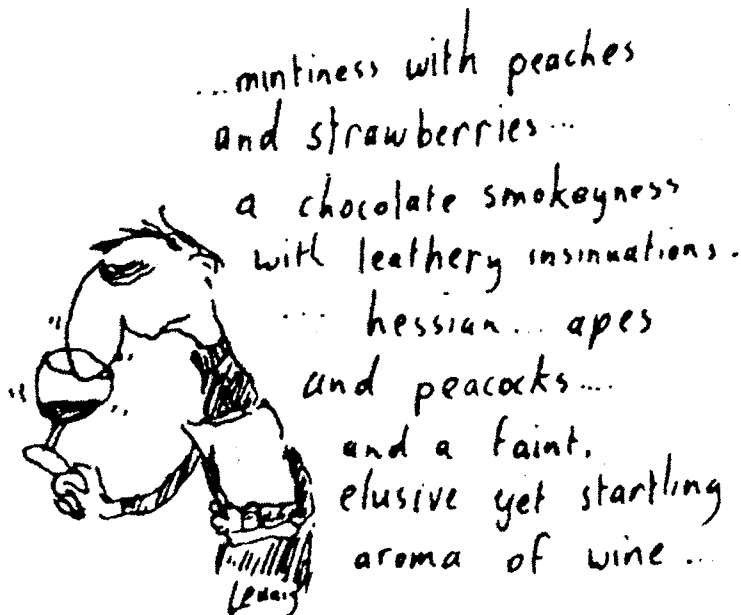 ...mintiness with peaches
and strawberries...
a chocolate smokeyness
with leathery insinuations.
... hessian... apes
and peacocks....
and a faint,
elusive yet startling
aroma of wine...
Leunig